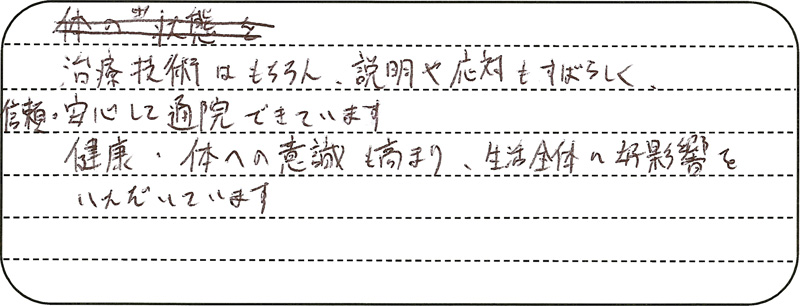 体の状態を
治療技術はもちろん、説明や応対もすばらしく、
信頼・安心して通院できています
健康・体への意識も高まり、生活全体に好影響を
いただいています